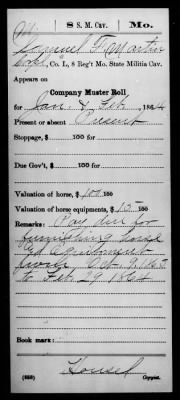 M | 8 S. M. Cav. | Mo.
Samuel F. Martin
Corpl, Co. L, 8 Reg't Mo. State Militia Cav.
Appears on
Company Muster Roll
for Jan. & Feb., 1864
Present or absent Present
Stoppage, $ 100 for
Due Gov't, $ 100 for
Valuation of horse, $ 100 100
Valuation of horse equipments, $ 15 100
Remarks: Pay due for
furnishing horse
and equipment
from Oct. 9, 1863
to Feb 29 1864
Book mark:
Housel
(858) Copyist.